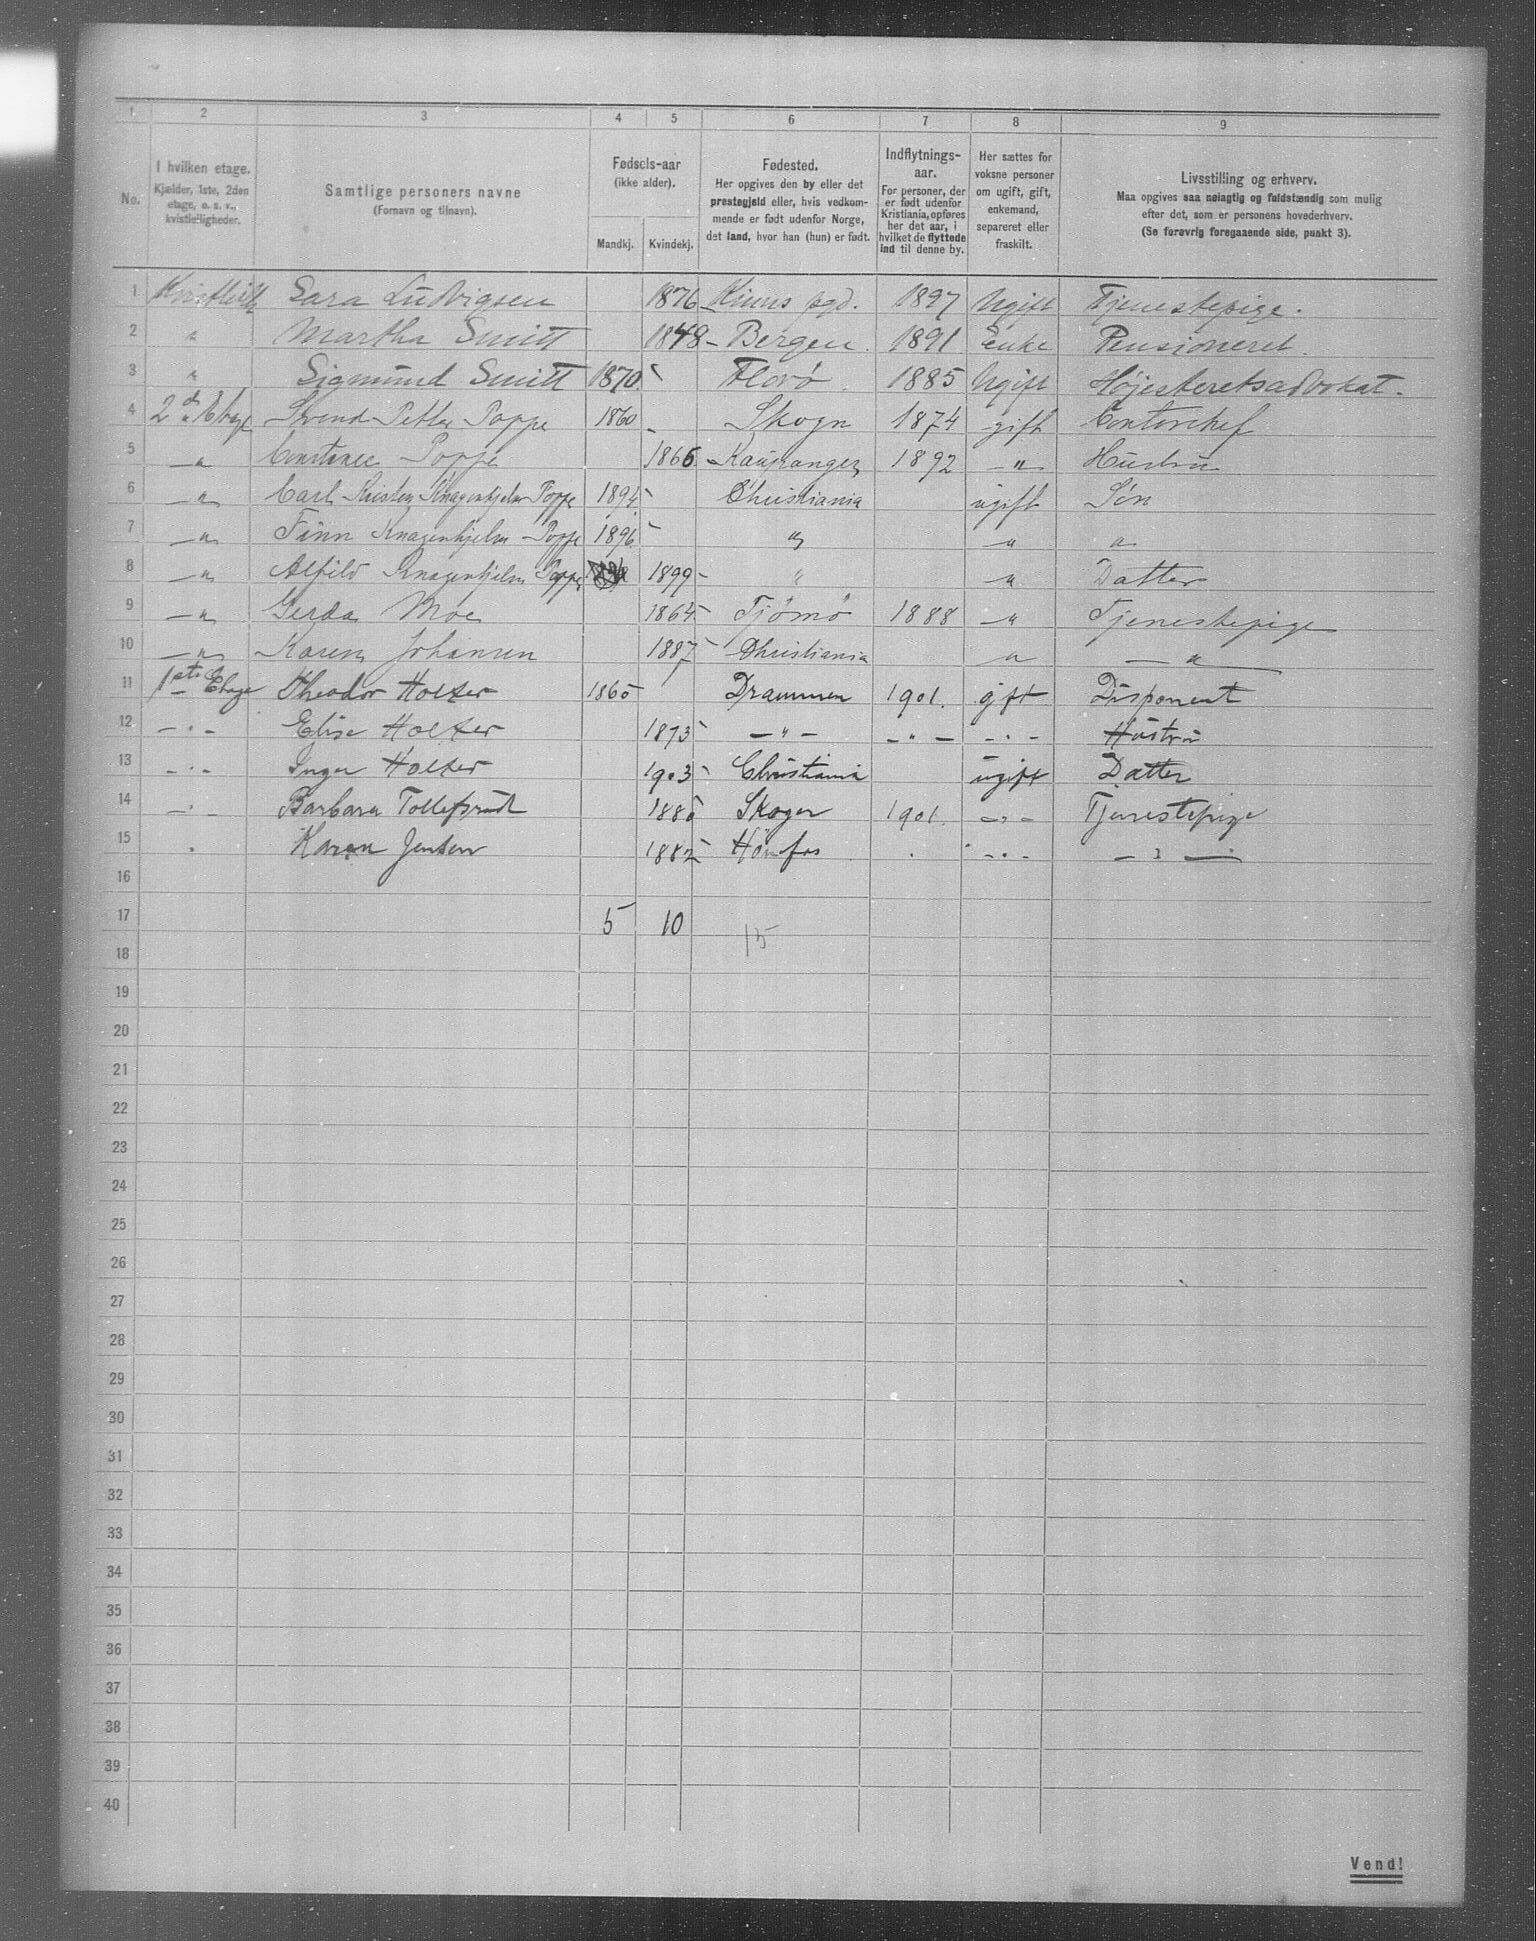 1 2 3 4 5 6 7 8 9
No.
I hvilken etage.
Kjælder, 1ste, 2den
etage, o. s. v.,
kvistleiligheder.
Samtlige personers navne
(Fornavn og tilnavn).
Fødsels-aar
(ikke alder).
Mandkj. Kvindekj.
Fødested.
Her opgives den by eller det
prestegjeld eller, hvis vedkom-
mende er født udenfor Norge,
det land, hvor han (hun) er født.
Indflytnings-
aar.
For personer, der
er født udenfor
Kristiania, opføres
her det aar, i
hvilket de flyttede
ind til denne by.
Her sættes for
voksne personer
om ugift, gift,
enkemand,
separeret eller
fraskilt.
Livsstilling og erhverv.
Maa opgives saa nøiagtig og fuldstændig som mulig
efter det, som er personens hovederhverv.
(Se forøvrig foregaaende side, punkt 3).
1 Sara Ludvigsen 1876 Kinns pgd. 1897 Ugift Tjenestepige.
2 " Martha Smitt 1848 Bergen. 1891 Enke Pensioneret.
3 " Sigmund Smitt 1870 Florø. 1885 Ugift Højesteretsadvokat.
4 2den Etage Svend Petter Poppe 1860 Skogn 1874 gift Contorchef
5 — " Constance Poppe 1866 Kaupanger 1892 — " — Hustru
6 — " Carl Knagenhjelm Poppe 1894 Christiania ugift Søn
7 — " Finn Knagenhjelm Poppe 1896 " — " "
8 — " Alfild Knagenhjelm Poppe 1899 " " Datter
9 — " Gerda Moe 1864 Tjømø 1888 — " Tjenestepige
10 — " Karen Johansen 1887 Christiania " — " —
11 1ste Etage Theodor Holter 1865 Drammen 1901. gift Disponent
12 — " — Elise Holter 1873 — " — — " — — " — Hustru
13 — " — Inger Holter 1903 Christiania ugift Datter
14 — " — Barbara Tollefsrud 1880 Skoger 1901. — " — Tjenestepige
15 " Karen Jensen 1882 Hønefos " — " — — " —
16
17 5 10 15
18
19
20
21
22
23
24
25
26
27
28
29
30
31
32
33
34
35
36
37
38
39
40
Vend!